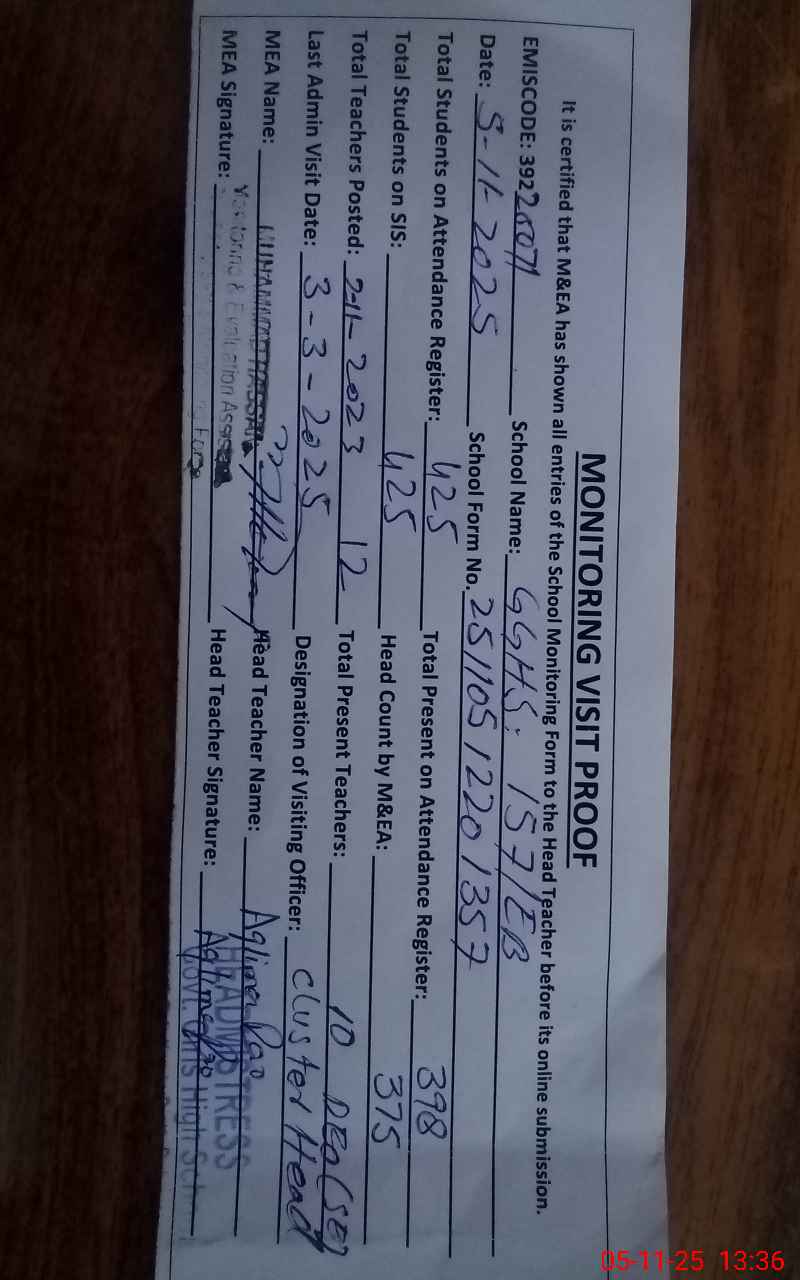 MONITORING VISIT PROOF
It is certified that M&EA has shown all entries of the School Monitoring Form to the Head Teacher before its online submission.
EMISCODE: 39220071 School Name: GGHS: 157/EB
Date: 5-11-2025 School Form No. 25110512201357
Total Students on Attendance Register: 425 Total Present on Attendance Register: 398
Total Students on SIS: 425 Head Count by M&EA: 375
Total Teachers Posted: 12 Total Present Teachers: 10
2-11-2023 DEO (SE)
Last Admin Visit Date: 3-3-2025 Designation of Visiting Officer: Cluster Head
MEA Name: MUHAMMAD HASSAN Head Teacher Name: Aqlima
Monitoring & Evaluation Assistant HEADMISTRESS
MEA Signature: Head Teacher Signature: Aqlima
Govt. Girls High Sch
05-11-25 13:36